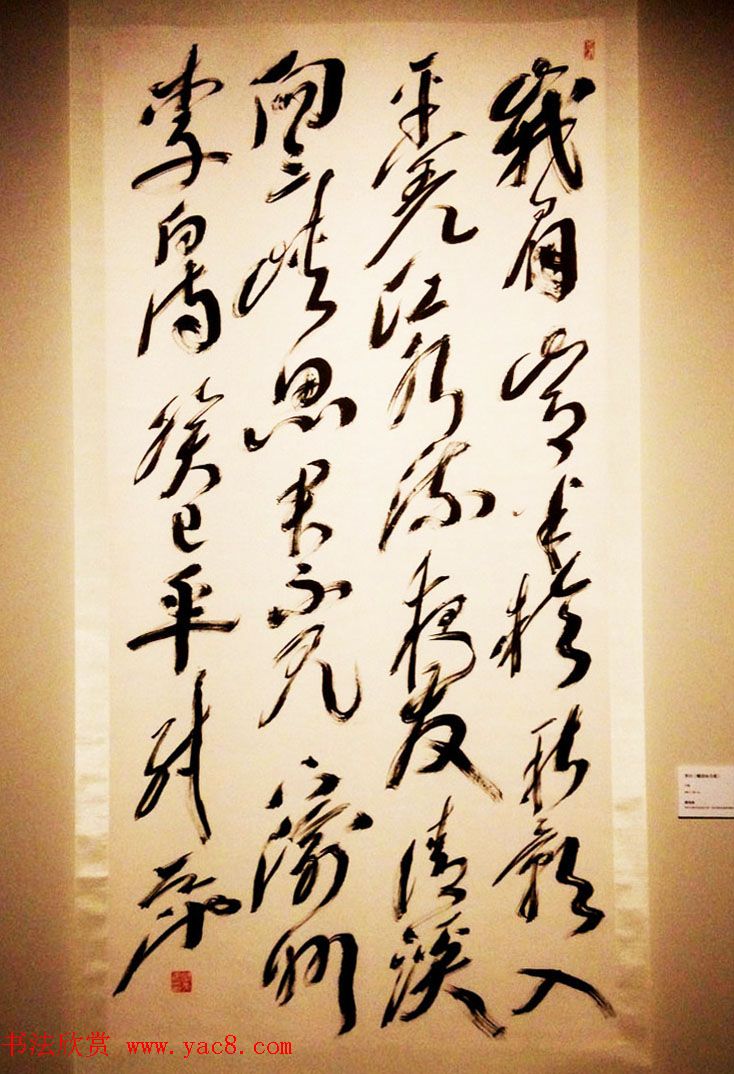 峩眉山月半輪秋影入
平羌江水流夜發清溪
向三峽思君不見下渝州
李白詩 癸巳年
书法欣赏 www.yac8.com